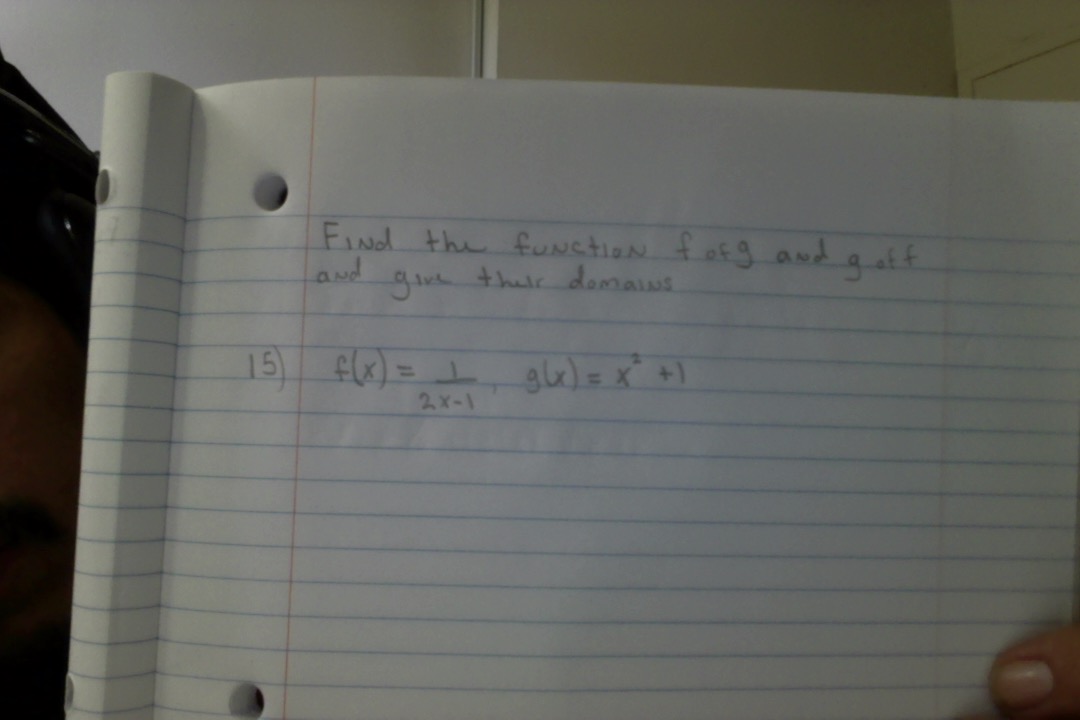 Find the function f of g and g of f
and give their domains
15) f(x) = 1/(2x-1), g(x) = x² + 1